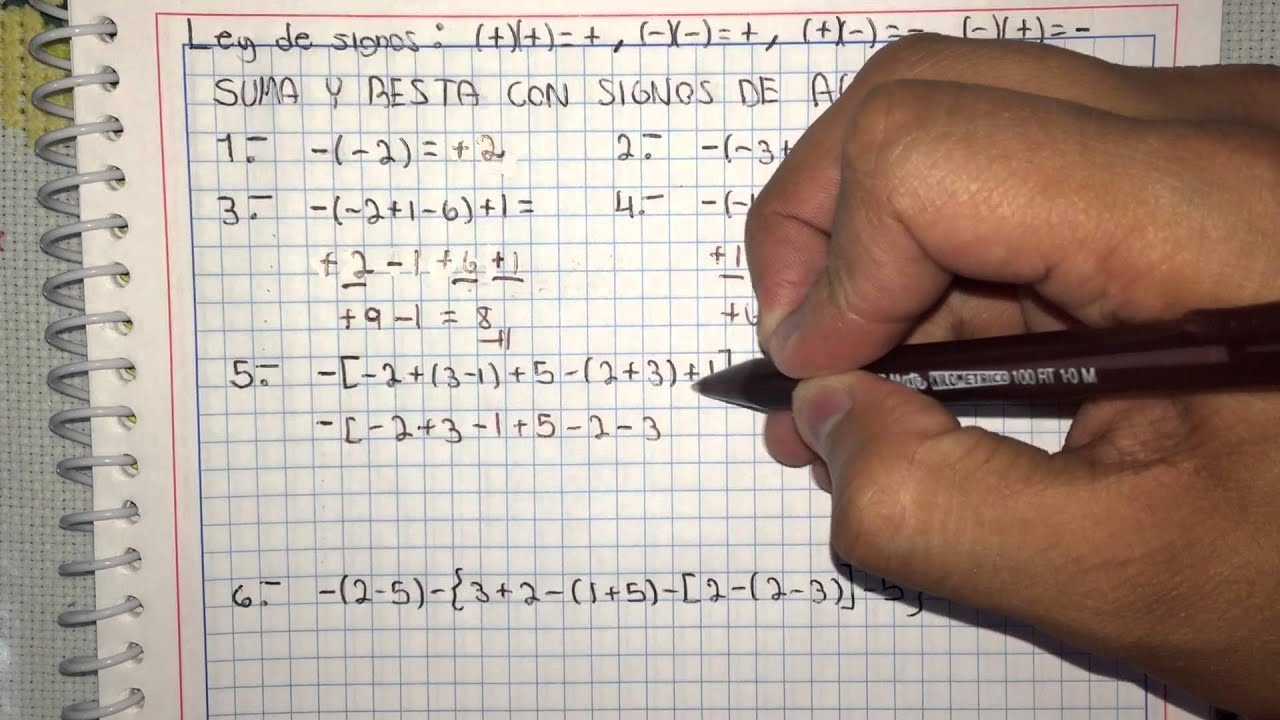 Ley de signos: (+)(+)=+, (-)(-)=+, (+)(-)=-, (-)(+)=-
SUMA Y RESTA CON SIGNOS DE
1.- -(-2)=+2 2.- -(-3+
3.- -(-2+1-6)+1= 4.- -(-1
+2-1+6+1 +1
+9-1=8
5.- -[-2+(3-1)+5-(2+3)+1]
KILOMETRICO 100 RT 1.0 M
-[-2+3-1+5-2-3
6.- -(2-5)-{3+2-(1+5)-[2-(2-3)]-5}